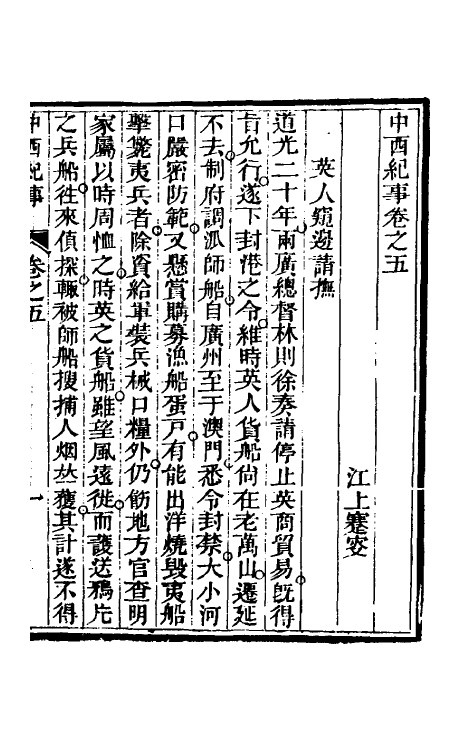 中西紀事卷之五
江上蹇叟
英人窺邊請撫
道光二十年兩廣總督林則徐奏請停止英商貿易旣得
旨允行遂下封港之令維時英人貨船尚在老萬山遷延
不去制府調派師船自廣州至于澳門悉令封禁大小河
口嚴密防範又懸賞購募漁船蛋戸有能出洋燒毀夷船
擊斃夷兵者除資給軍裝兵械口糧外仍飭地方官查明
家屬以時周恤之時英之貨船雖望風遠徙而護送鴉片
之兵船往來偵探輒被師船搜捕人烟並獲其計遂不得
中西紀事
卷之五
一